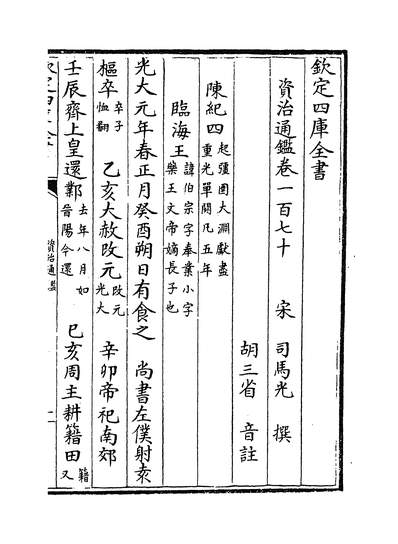 欽定四庫全書
資治通鑑卷一百七十　宋　司馬光　撰
胡三省　音註
陳紀四 起彊圉大淵獻盡重光單閼凡五年
臨海王 諱伯宗字奉業小字藥王文帝嫡長子也
光大元年春正月癸酉朔日有食之　尚書左僕射袁
樞卒 卒子恤翻　乙亥大赦改元 改元光大　辛卯帝祀南郊
壬辰齊上皇還鄴 去年八月如晉陽今還　己亥周主耕籍田 籍又
資治通鑑